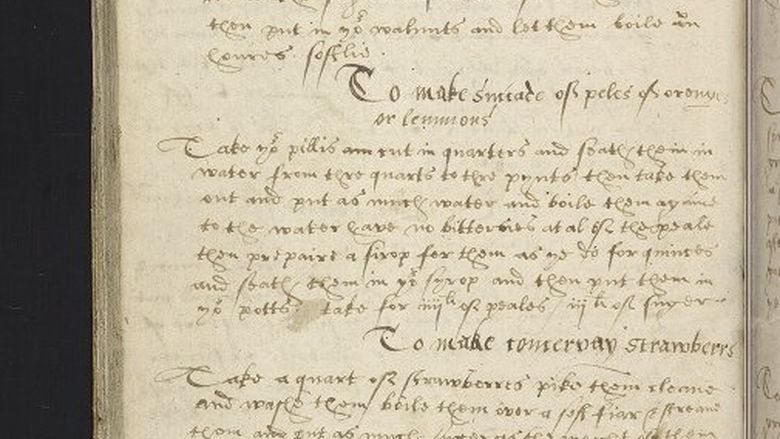 then put in yor walnuts and let them boile
houres softlie
To make sucade off peles off
or lemmons
Take yor pillis and cut in quarters and seath them in
water from thre quarts to thre pynts then take them
out and put as much water and boile them agane
to the water have no bitternes at al off the peale
then prepaire a sirop for them as ye do for quinces
and seath them in yor syrop and then put them in
yor potts take for iiij li off peales iij li off suger
To make conservay strawberrs
Take a quart off strawberres pike them cleane
and washe them boile them over a soft fiar & streane
them and put as much suger as the